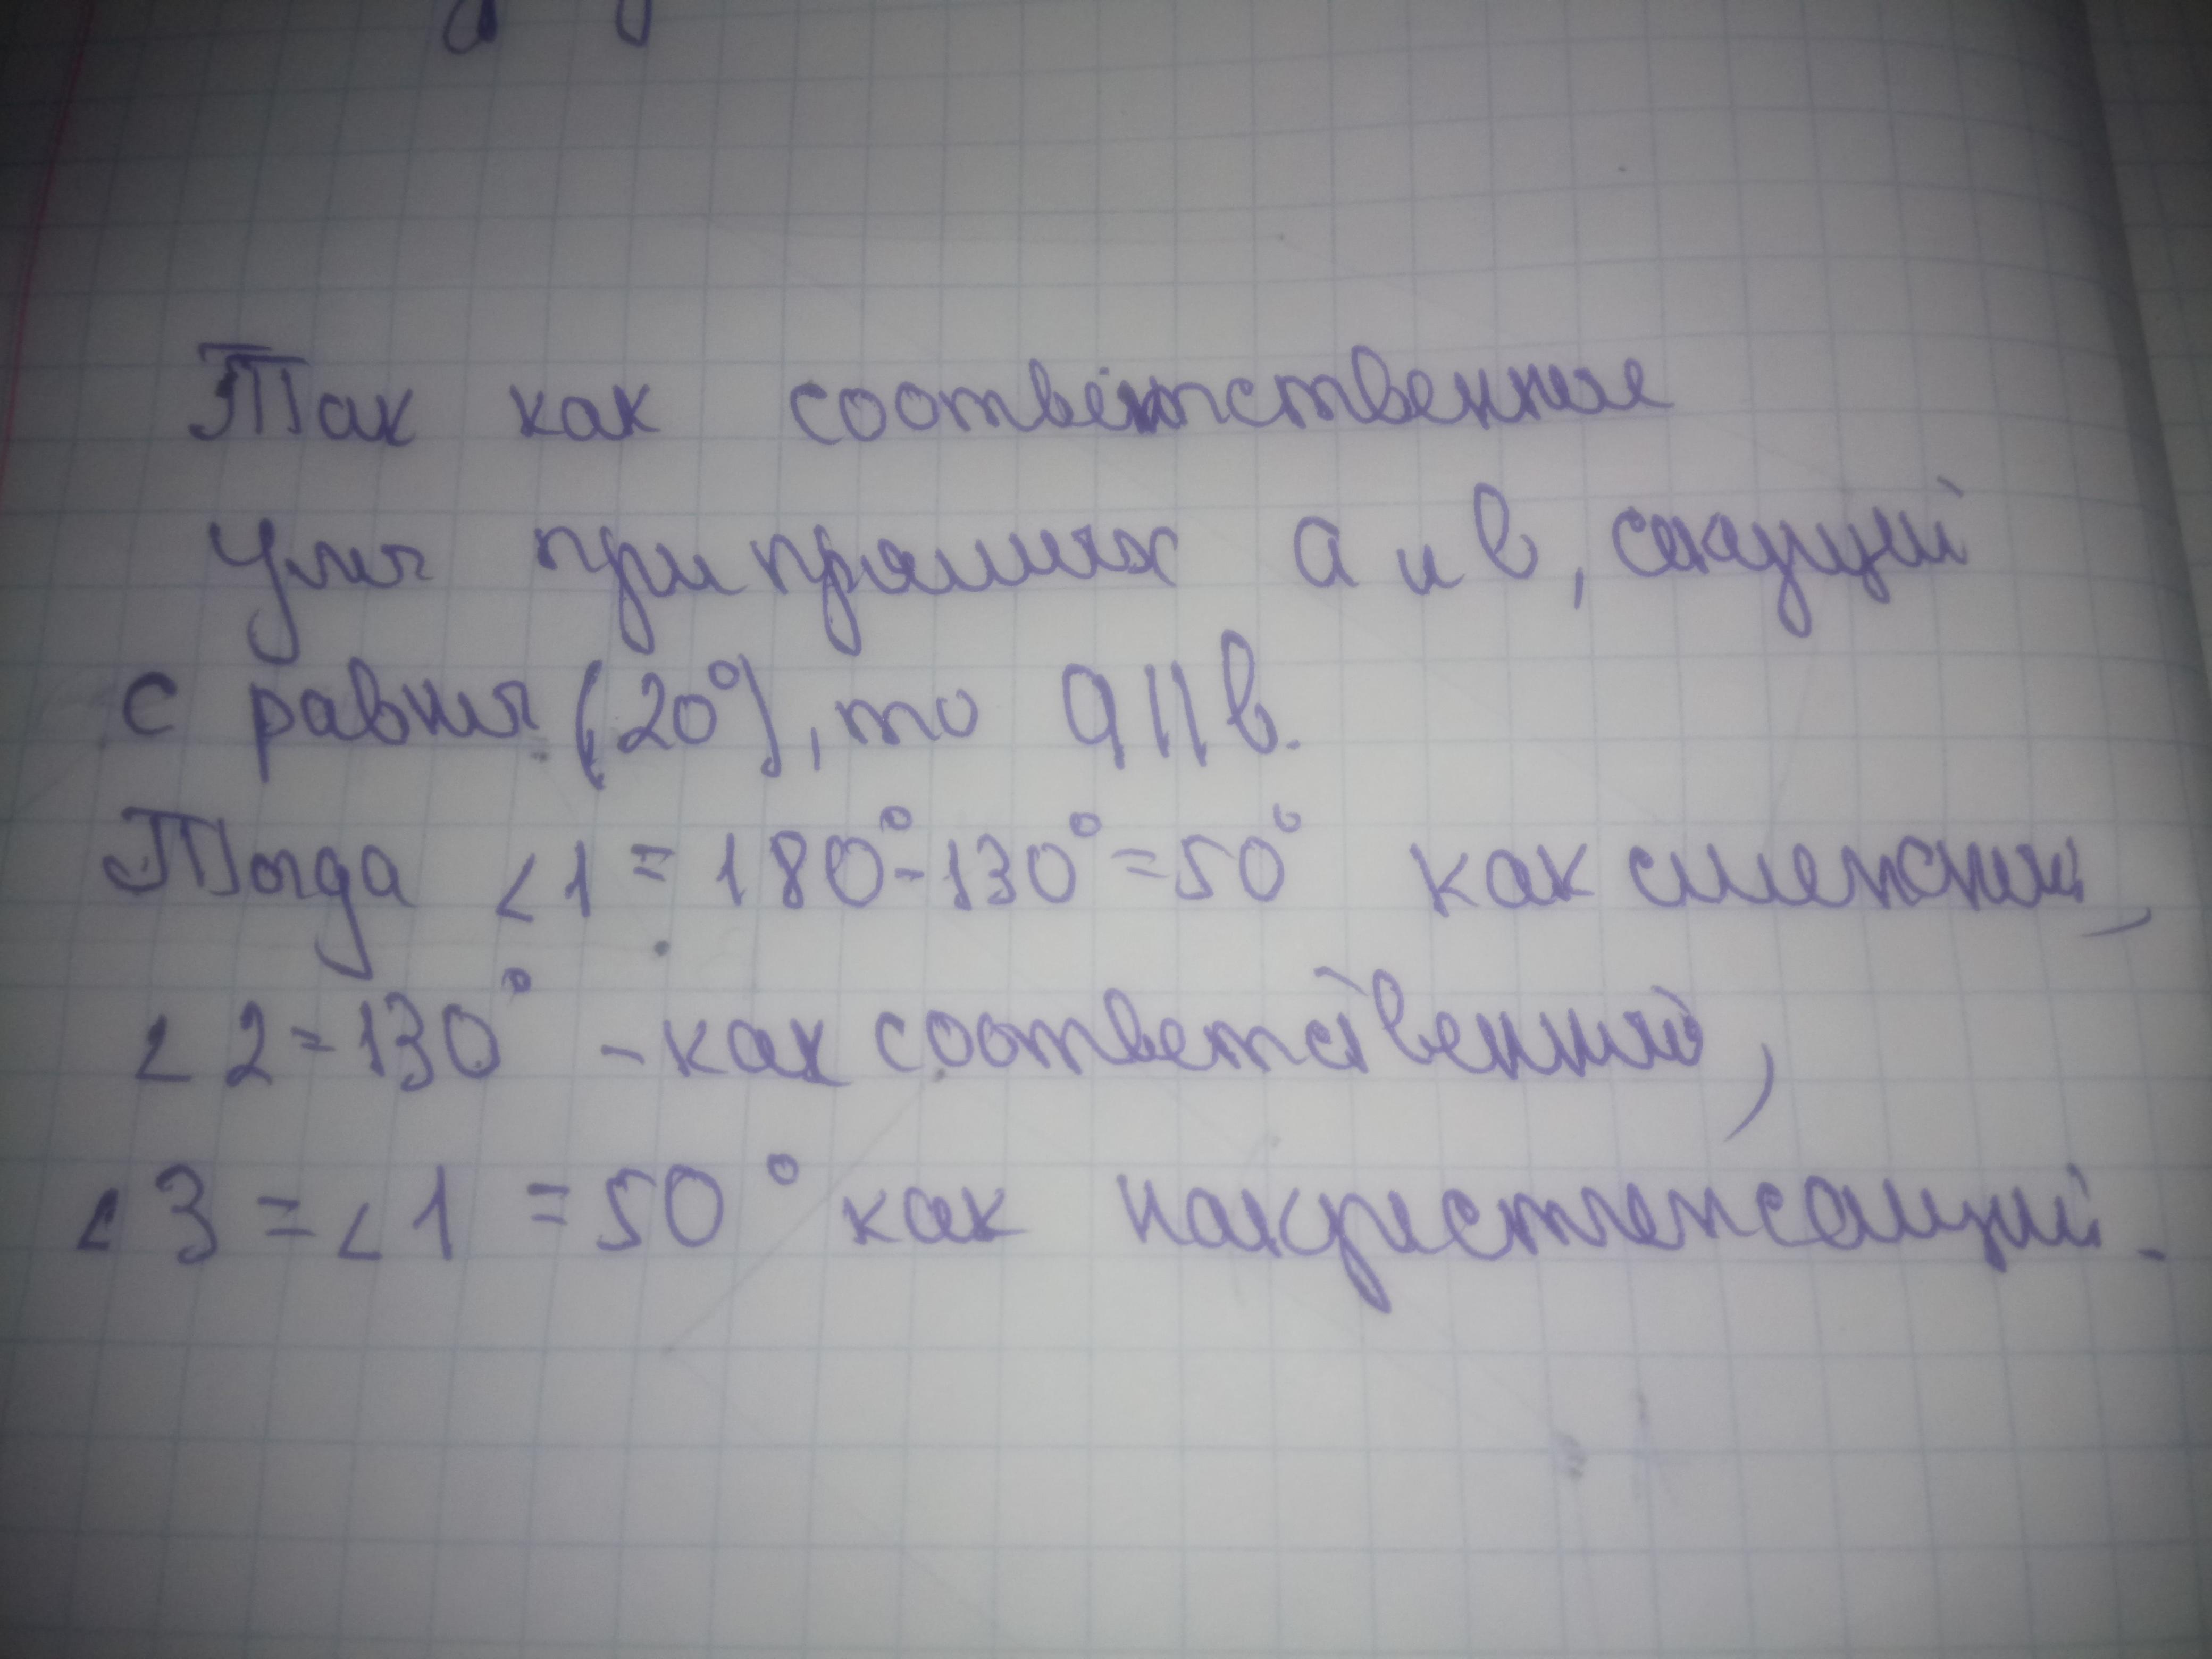 Так как соответственные
углы при прямых а и в, секущей
с равны (20°), то а || в.
Тогда ∠1 = 180° - 130° = 50° как смежный,
∠2 = 130° - как соответственный,
∠3 = ∠1 = 50° как накрестлежащий.